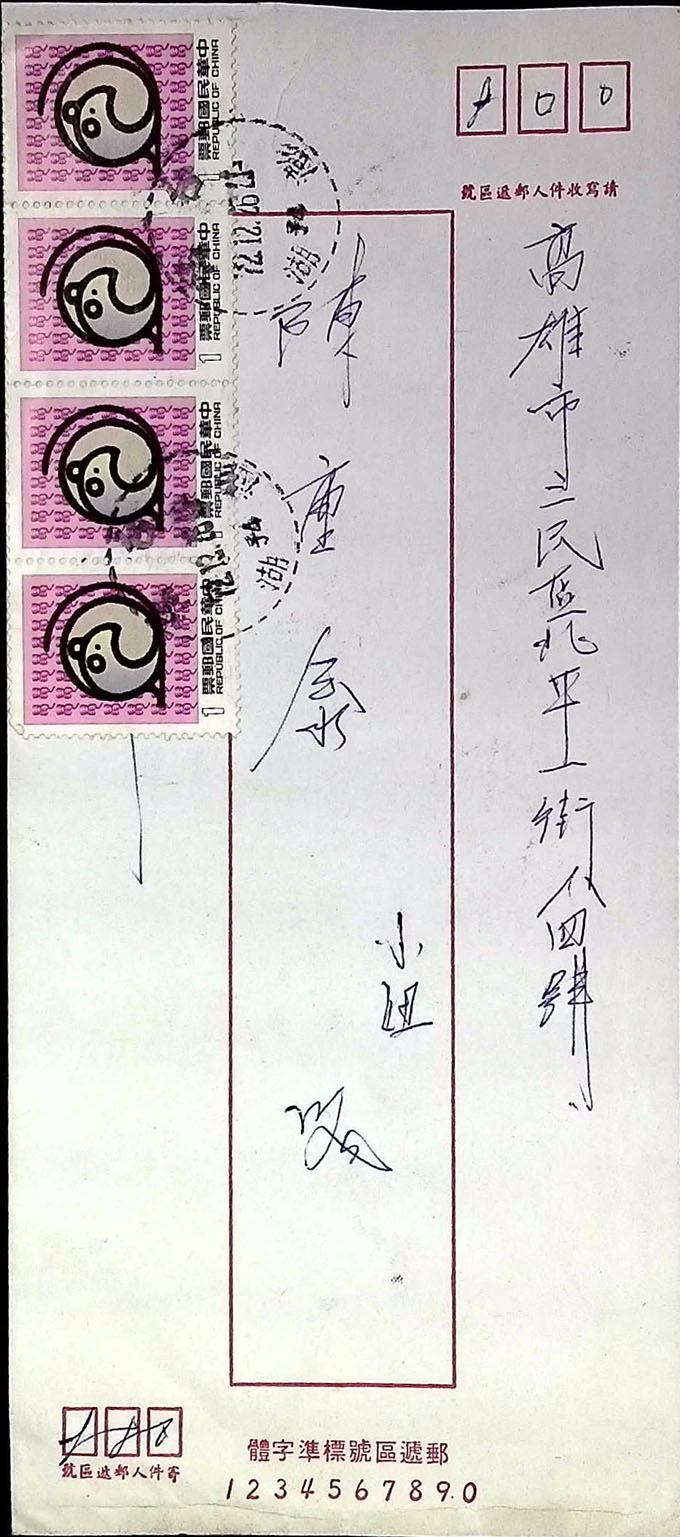 請寫收件人郵遞區號
高雄市三民區北平一街八四號
陳
小姐
啟
中華民國郵票
REPUBLIC OF CHINA
1
中華民國郵票
REPUBLIC OF CHINA
1
中華民國郵票
REPUBLIC OF CHINA
1
中華民國郵票
REPUBLIC OF CHINA
1
72.12.26.21
湖
湖
寄件人郵遞區號
郵遞區號標準字體
1 2 3 4 5 6 7 8 9.0